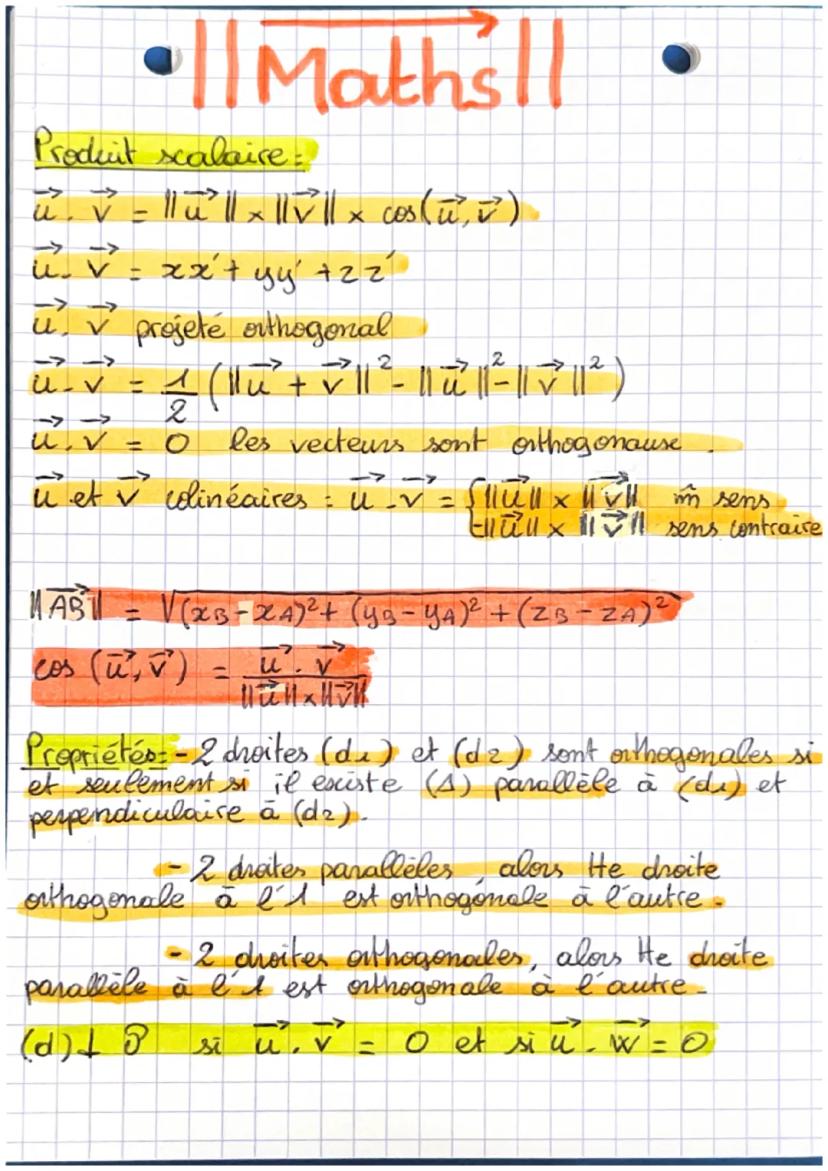 ||Maths||
Produit scalaire:
u⃗ . v⃗ = ||u⃗|| × ||v⃗|| × cos(u⃗, v⃗)
u⃗ . v⃗ = xx' + yy' + zz'
u⃗ . v⃗ projeté orthogonal
u⃗ . v⃗ = 1/2 (||u⃗ + v⃗||² - ||u⃗||² - ||v⃗||²)
u⃗ . v⃗ = 0 les vecteurs sont orthogonause.
u⃗ et v⃗ colinéaires : u⃗ . v⃗ = { ||u⃗|| × ||v⃗|| m̂ sens
-||u⃗|| × ||v⃗|| sens contraire
||AB⃗|| = √(xB - xA)² + (yB - yA)² + (zB - zA)²
cos (u⃗, v⃗) = u⃗ . v⃗ / ||u⃗|| × ||v⃗||
Propriétés: - 2 droites (d1) et (d2) sont orthogonales si
et seulement si il existe (Δ) parallèle à (d1) et
perpendiculaire à (d2).
- 2 droites parallèles, alors tte droite
orthogonale à l'1 est orthogonale à l'autre.
- 2 droites orthogonales, alors tte droite
parallèle à l'1 est orthogonale à l'autre.
(d) ⊥ P si u⃗ . v⃗ = 0 et si u⃗ . w⃗ = 0